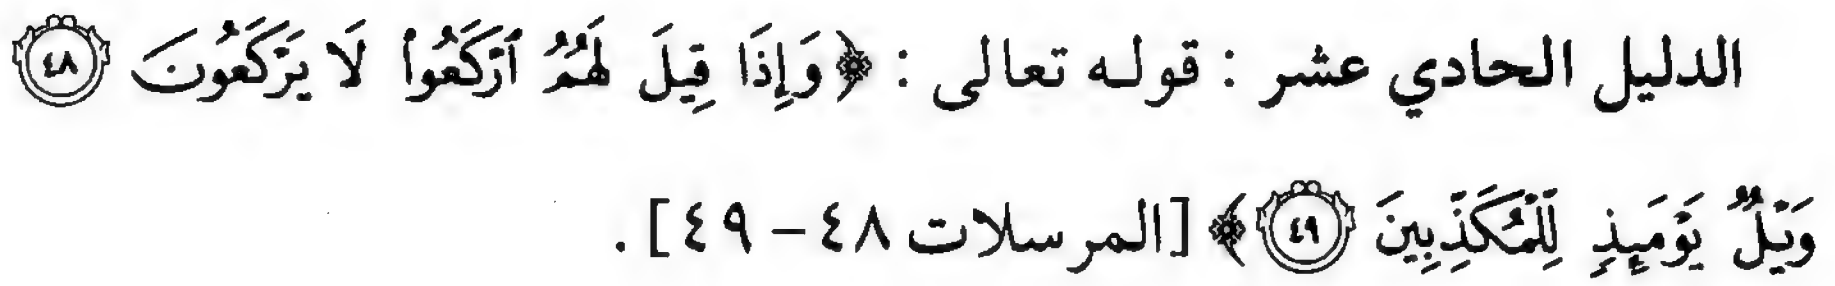 الدليل الحادي عشر : قوله تعالى : ﴿ وَإِذَا قِيلَ لَهُمُ ٱرْكَعُوا۟ لَا يَرْكَعُونَ ٤٨
وَيْلٌ يَوْمَئِذٍ لِّلْمُكَذِّبِينَ ٤٩ ﴾ [المرسلات ٤٨ – ٤٩] .